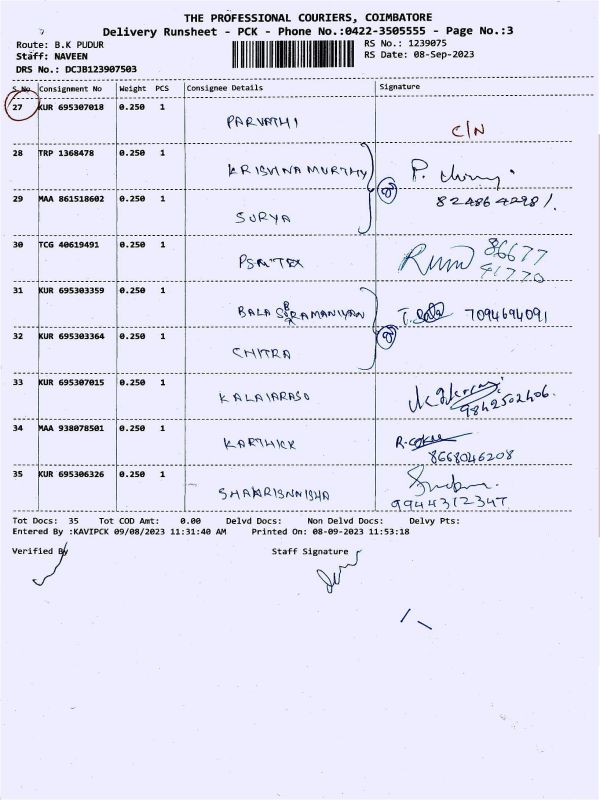 THE PROFESSIONAL COURIERS, COIMBATORE
Delivery Runsheet - PCK - Phone No.:0422-3505555 - Page No.:3
Route: B.K PUDUR RS No.: 1239075
Staff: NAVEEN RS Date: 08-Sep-2023
DRS No.: DCJB123907503
S.No Consignment No Weight PCS Consignee Details Signature
27 KUR 695307018 0.250 1 PARVATHI C/N
28 TRP 1368478 0.250 1 KRISHNAMURTHY
29 MAA 861518602 0.250 1 SURYA
30 TCG 40619491 0.250 1 86677
91770
31 KUR 695303359 0.250 1 7094694091
32 KUR 695303364 0.250 1 CHITRA
33 KUR 695307015 0.250 1 KALAIARASO
9842502406.
34 MAA 938078501 0.250 1 KARTHICK
8668046208
35 KUR 695306326 0.250 1
9944312347
Tot Docs: 35 Tot COD Amt: 0.00 Delvd Docs: Non Delvd Docs: Delvy Pts:
Entered By :KAVIPCK 09/08/2023 11:31:40 AM Printed On: 08-09-2023 11:53:18
Verified By Staff Signature